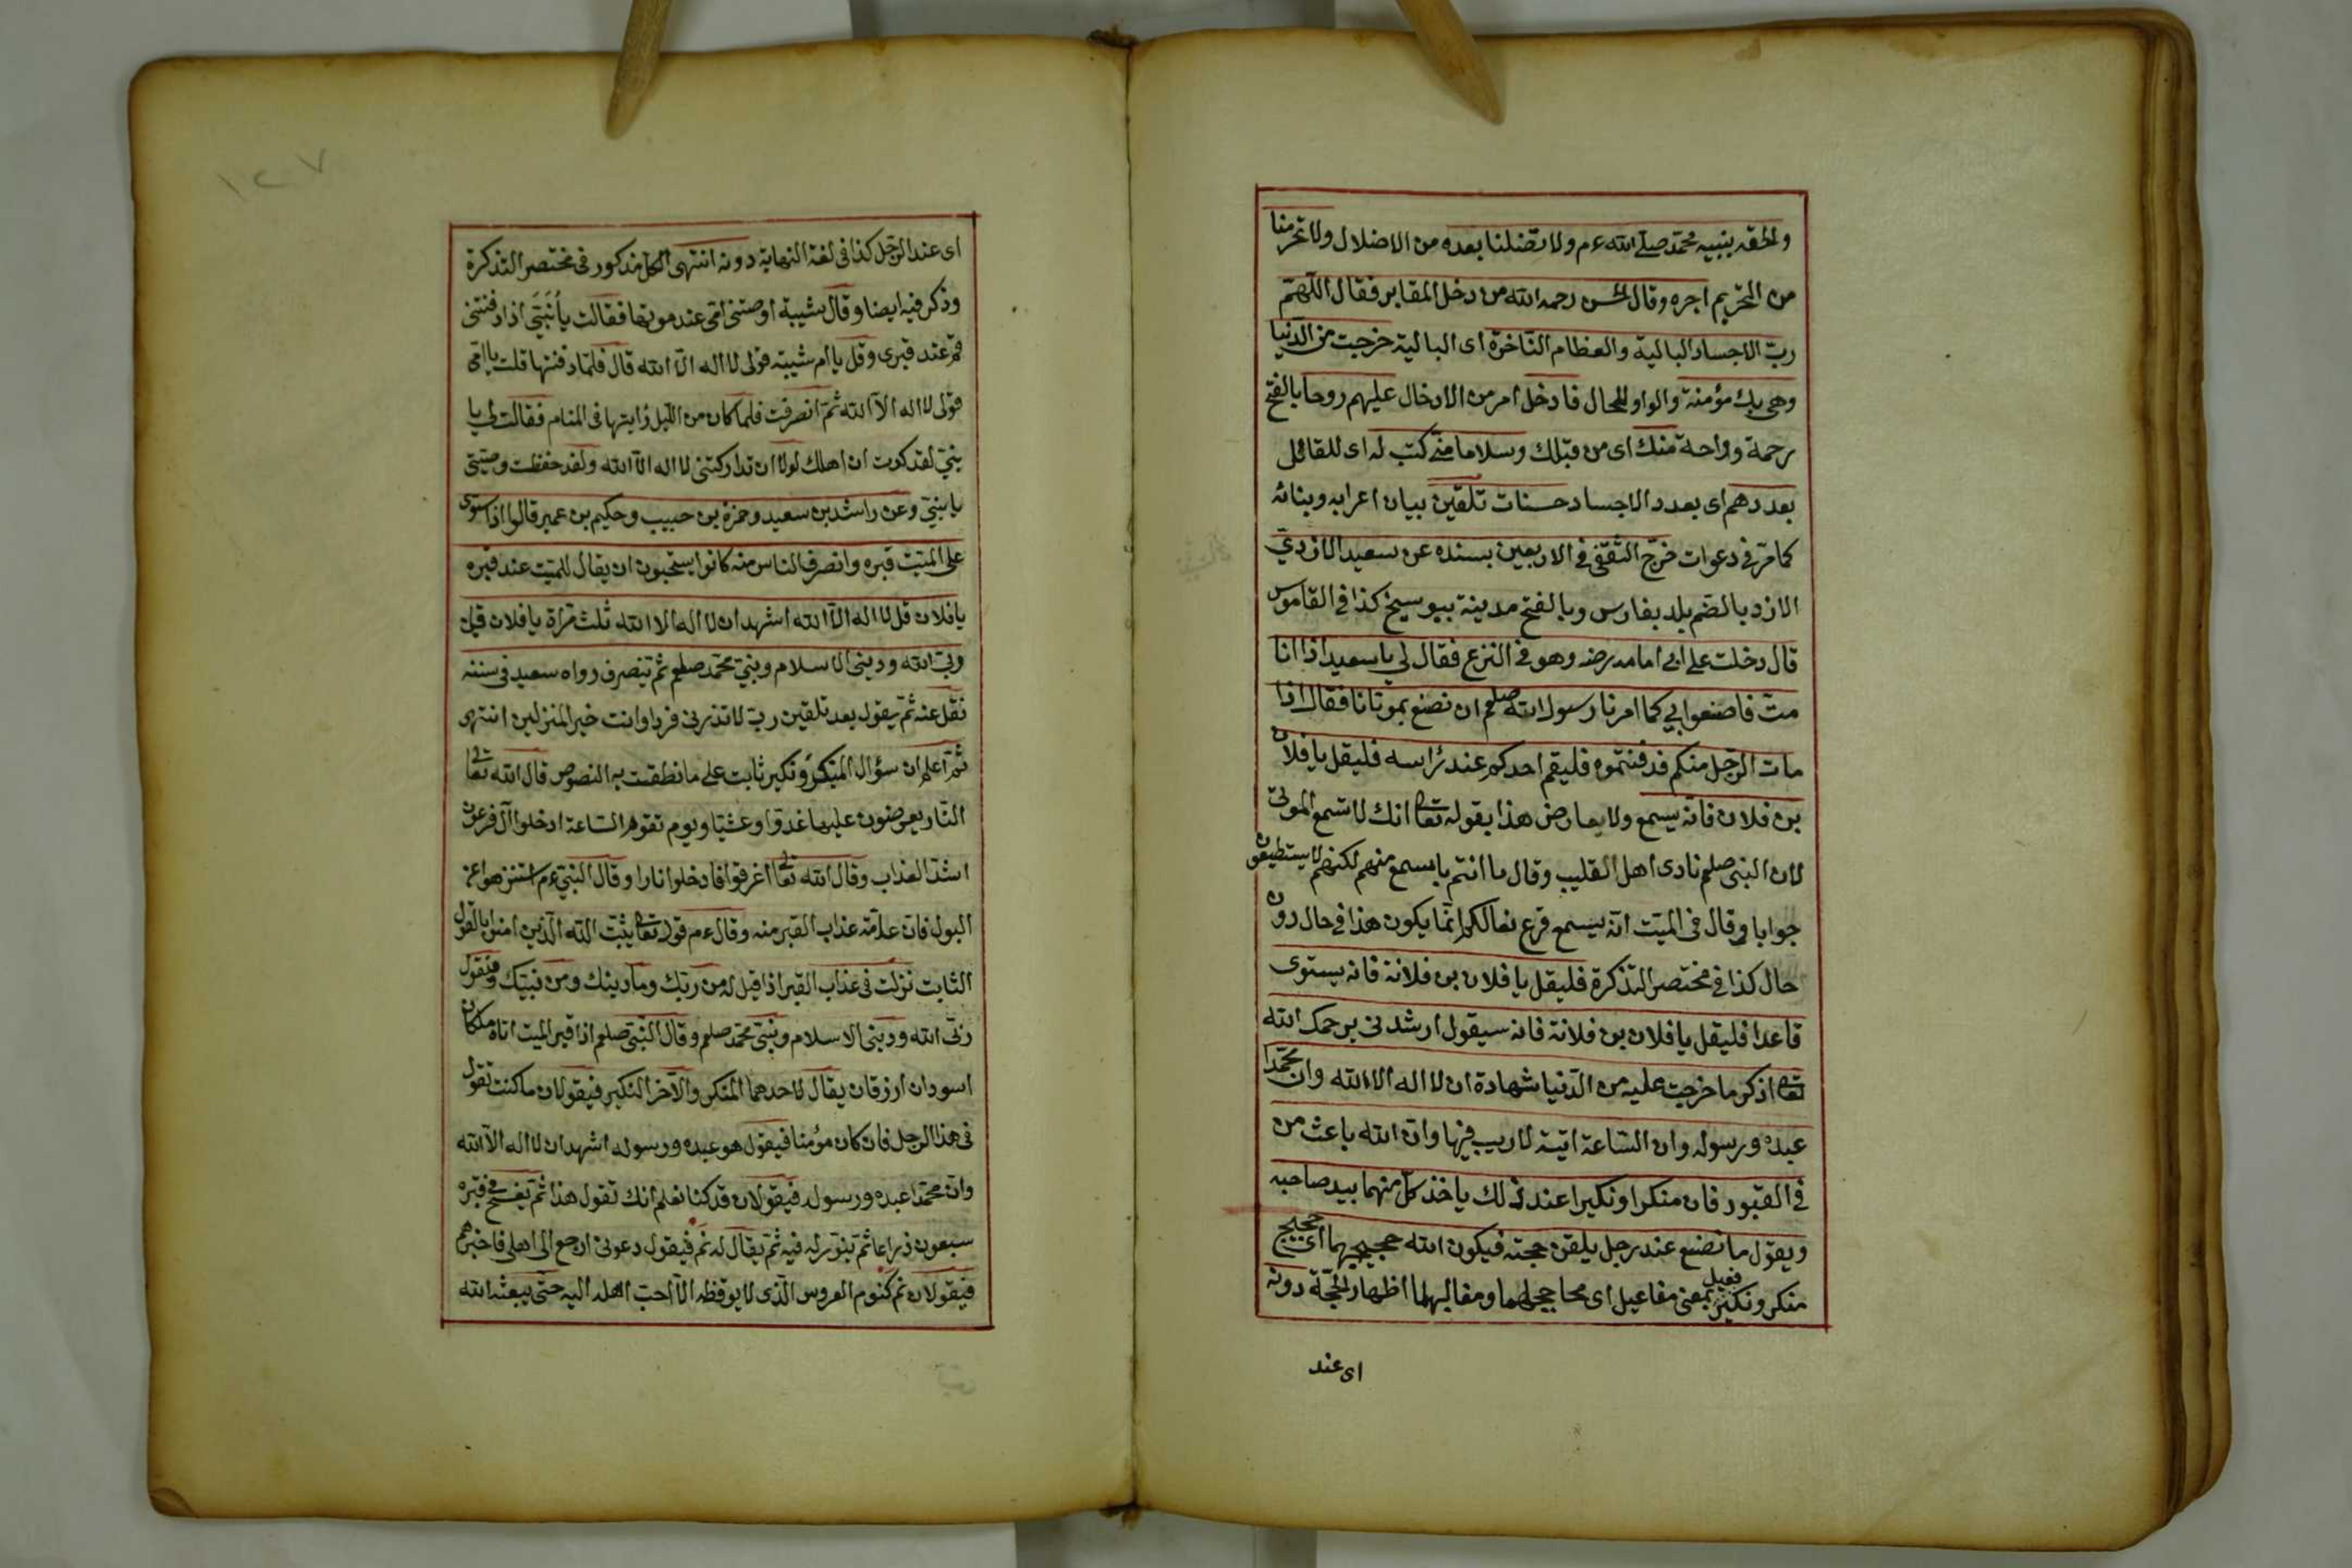 والحقه بنبيه محمد صلى الله عم ولا تضلنا بعده من الاضلال ولا تحرمنا
من التحريم اجره وقال الحسن رحمه الله من دخل المقابر فقال اللهم
رب الاجساد البالية والعظام الناخرة اى البالية خرجت من الدنيا
وهى بك مؤمنة والواو للحال فادخل امر من الادخال عليهم روحا بالفتح
رحمة وراحة منك اى من قبلك وسلاما منى كتب له اى للقائل
بعددهم اى بعدد الاجساد حسنات تلقين بيان اعرابه وبنائه
كما مر فى دعوات خرج الثقفى فى الاربعين بسنده عن سعيد الازدي
الازد بالضم بلد بفارس وبالفتح مدينة كذا فى القاموس
قال دخلت على ابى امامه رضه وهو فى النزع فقال لى يا سعيد اذا انا
مت فاصنعوا بي كما امرنا رسول الله صلعم ان نصنع بموتانا فقال اذا
مات الرجل منكم فدفنتموه فليقم احدكم عند رأسه فليقل يا فلان
بن فلان فانه يسمع ولا يعارض هذا بقوله تعا انك لا تسمع الموتى
لان النبى صلعم نادى اهل القليب وقال ما انتم باسمع منهم لكنهم لا يستطيعون
جوابا وقال فى الميت انه يسمع قرع نعالكم انما يكون هذا فى حال دون
حال كذا فى مختصر التذكرة فليقل يا فلان بن فلانة فانه يستوى
قاعدا فليقل يا فلان بن فلانة فانه سيقول ارشدنى يرحمك الله
تعا اذكر ما خرجت عليه من الدنيا شهادة ان لا اله الا الله وان محمدا
عبده ورسوله وان الساعة اتية لا ريب فيها وان الله باعث من
فى القبور فان منكرا ونكيرا عند ذلك ياخذ كل منهما بيد صاحبه
ويقول ما نصنع عند رجل يلقن حجته فيكون الله حجيجهما اى حجيج
منكر ونكير فعيل بمعنى مفاعيل اى محاججهما ومقالبهما اظهار الحجة دونه
اى عند
١٢٧
اى عند الرجل كذا فى لغة النهاية دونه انتهى الكل مذكور فى مختصر التذكرة
وذكر فيه ايضا وقال شيبة اوصتنى امى عند موتها فقالت يا بنى اذا دفنتنى
قم عند قبرى وقل يا ام شيبة قولى لا اله الا الله قال فلما دفنتها قلت يا امى
قولى لا اله الا الله ثم انصرفت فلما كان من الليل رايتها فى المنام فقالت لى يا
بنى لقد كدت ان اهلك لولا ان تداركتنى لا اله الا الله ولقد حفظت وصيتى
يا بنيى وعن راشد بن سعيد وحمزة بن حبيب وحكيم بن عمير قالوا اذا سوى
على الميت قبره وانصرف الناس منه كانوا يستحبون ان يقال للميت عند قبره
يا فلان قل لا اله الا الله اشهد ان لا اله الا الله ثلث مرة يا فلان قل
ربى الله ودينى الاسلام ونبيى محمد صلعم ثم تنصرف رواه سعيد فى سننه
نقل عنه ثم يقول بعد تلقين رب لا تذرنى فردا وانت خير المنزلين انتهى
ثم اعلم ان سؤال المنكر ونكير ثابت على ما نطقت به النصوص قال الله تعالى
النار يعرضون عليها غدوا وعشيا ويوم تقوم الساعة ادخلوا آل فرعون
اشد العذاب وقال الله تعالى اغرقوا فادخلوا نارا وقال النبى عم استنزهوا عن
البول فان علامة عذاب القبر منه وقال عم قوله تعا يثبت الله الذين امنوا بالقول
الثابت نزلت فى عذاب القبر اذا قيل له من ربك وما دينك ومن نبيك فيقول
ربى الله ودينى الاسلام ونبيى محمد صلعم وقال النبى صلعم اذا قبر الميت اتاه ملكان
اسودان ازرقان يقال لاحدهما المنكر والآخر النكير فيقولان ما كنت تقول
فى هذا الرجل فان كان مؤمنا فيقول هو عبده ورسوله اشهد ان لا اله الا الله
وان محمدا عبده ورسوله فيقولان قد كنا نعلم انك تقول هذا ثم يفسح فى قبره
سبعون ذراعا ثم ينور له فيه ثم يقال له نم فيقول دعونى ارجع الى اهلى فاخبرهم
فيقولان نم كنوم العروس الذى لا يوقظه الا احب اهله اليه حتى يبعثه الله